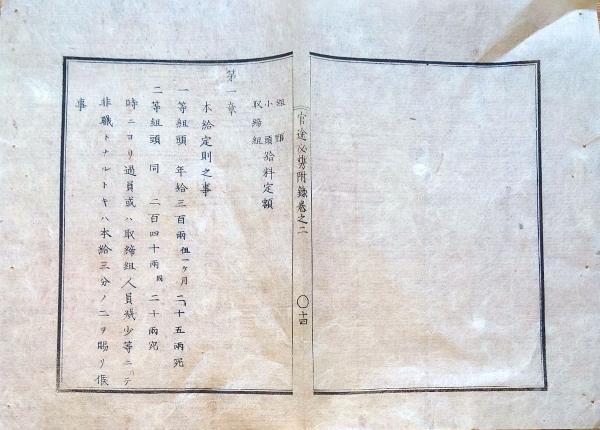 官途必携附録巻之二
〇十四
組頭
小頭給料定額
取締組
第一章
本給定則之事
一等組頭 年給三百兩 但一ヶ月 二十五兩宛
二等組頭 同 二百四十兩 同 二十兩宛
時ニヨリ過員或ハ取締組人員減少等ニテ
非職トナルトキハ本給三分ノ二ヲ賜リ候
事